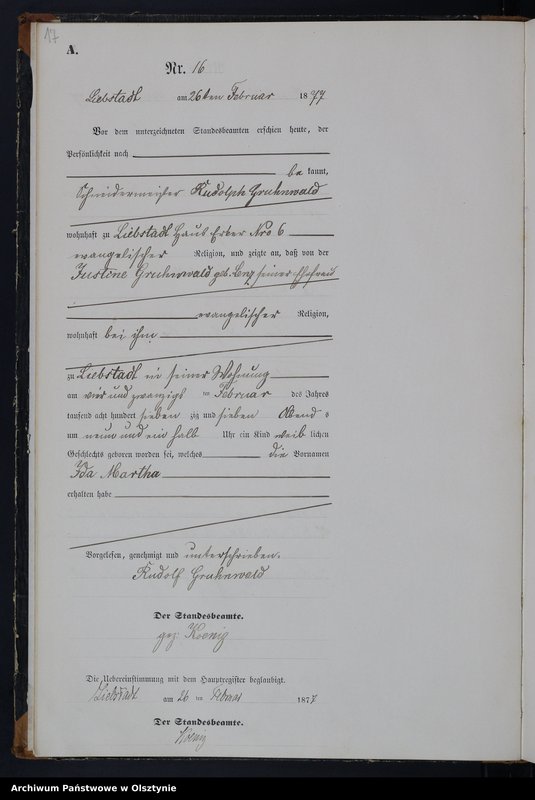 17
A.
Nr. 16
Liebstadt am 26ten Februar 1877
Vor dem unterzeichneten Standesbeamten erschien heute, der
Persönlichkeit nach
be kannt,
Schneidermeister Rudolph Gruhnwald
wohnhaft zu Liebstadt Haus Erker Nro 6
evangelischer Religion, und zeigte an, daß von der
Justine Gruhnwald geb. Lenz seiner Ehefrau
evangelischer Religion,
wohnhaft bei ihm
zu Liebstadt in seiner Wohnung
am vier und zwanzigs ten Februar des Jahres
tausend acht hundert sieben zig und sieben Abend s
um neun und ein halb Uhr ein Kind weib lichen
Geschlechts geboren worden sei, welches die Vornamen
Ida Martha
erhalten habe
Vorgelesen, genehmigt und unterschrieben.
Rudolf Gruhnwald
Der Standesbeamte.
gez. Koenig
Die Uebereinstimmung mit dem Hauptregister beglaubigt.
Liebstadt am 26 ten Februar 1877
Der Standesbeamte.
Koenig
Archiwum Państwowe w Olsztynie